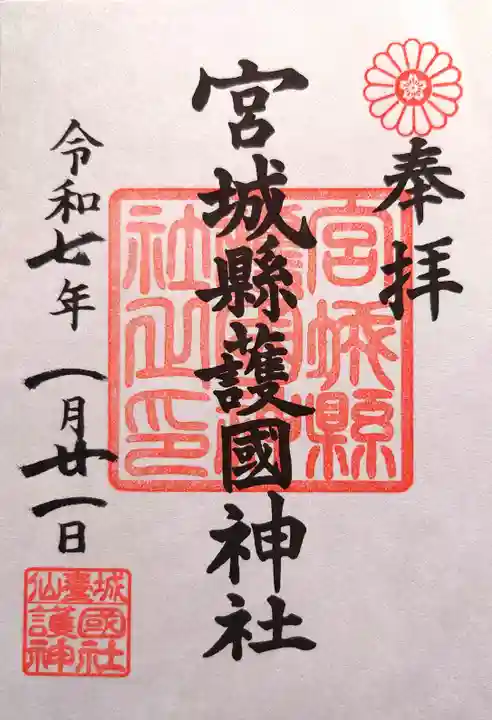 奉拝
宮城縣護國神社
宮城縣護國神社之印
令和七年一月廿一日
仙臺城
護國神社